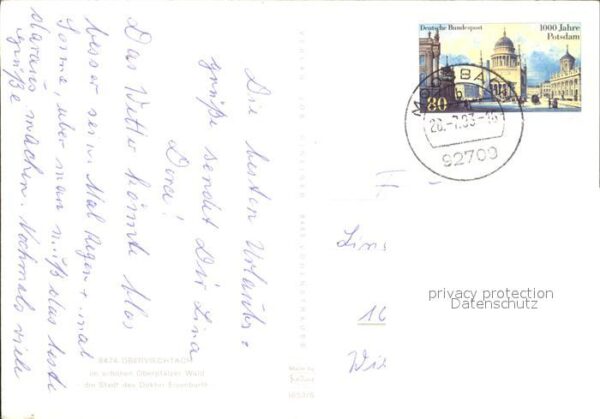 Die besten Urlaubs-
grüße sendet Dir Lina
Dora!
Das Wetter könnte etwas
besser sein. Mal Regen + mal
Sonne, aber man muß das beste
daraus machen. Nochmals viele
Grüße
8474 OBERVIECHTACH
im schönen Oberpfälzer Wald
die Stadt des Doktor Eisenbarth
Deutsche Bundespost
1000 Jahre
Potsdam
80
26.-7.93-
92709
privacy protection
Datenschutz